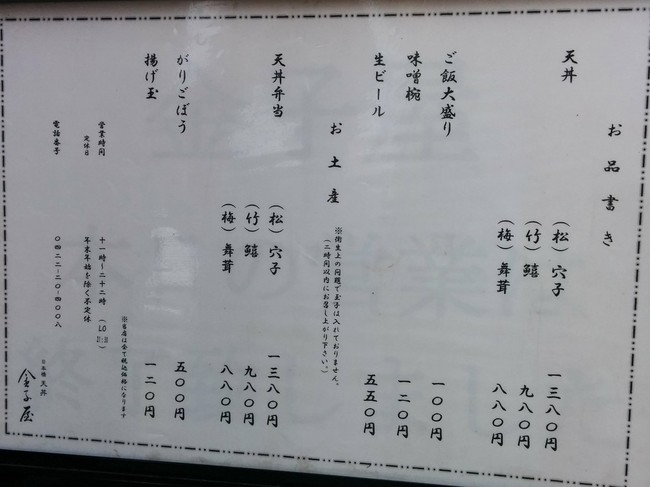 お品書き
天丼
（松）穴子 一三八〇円
（竹）鱚 九八〇円
（梅）舞茸 八八〇円
ご飯大盛り 一〇〇円
味噌椀 一二〇円
生ビール 五五〇円
お土産
※衛生上の問題で玉子は入れておりません。
（二時間以内にお召し上がり下さい。）
天丼弁当
（松）穴子 一三八〇円
（竹）鱚 九八〇円
（梅）舞茸 八八〇円
がりごぼう 五〇〇円
揚げ玉 一二〇円
※当店は全て税込価格になります
営業時間 十一時～二十二時
定休日 年末年始を除く不定休
電話番号 〇四二二-二〇-四〇〇八
日本橋 天丼
金子屋